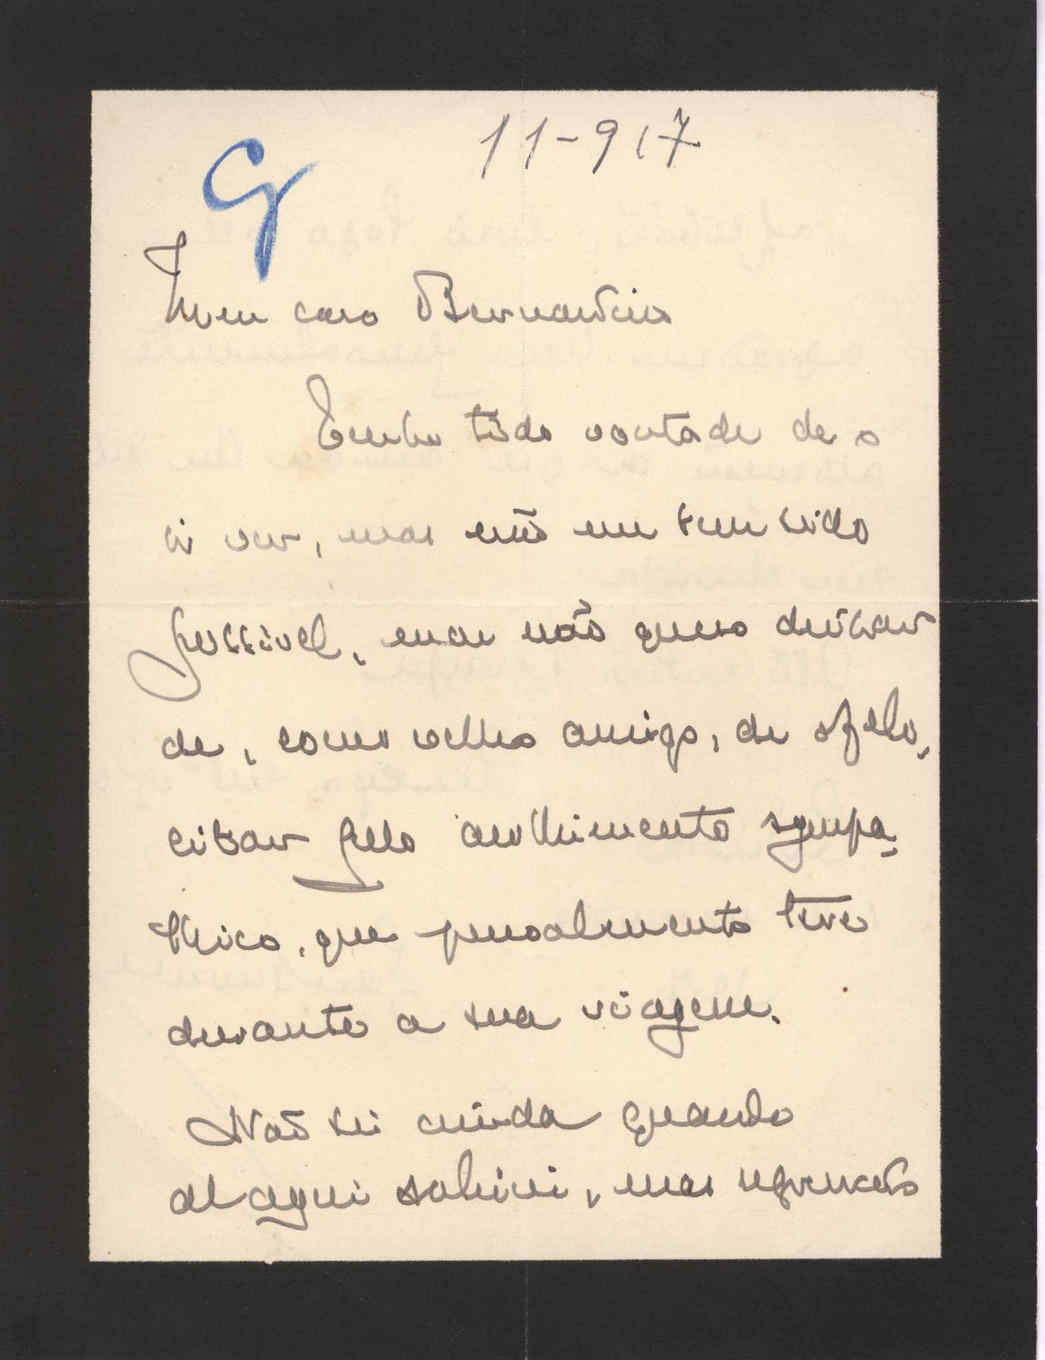 11-917
G
Meu caro Bernardino
Tenho tido vontade de o
ir ver, mas não me tem sido
possivel, mas não quero deixar
de, como velho amigo, de o feli-
citar pelo acolhimento sympa-
thico, que pessoalmente teve
durante a sua viagem.
Não sei ainda quando
d'aqui sahirei, mas